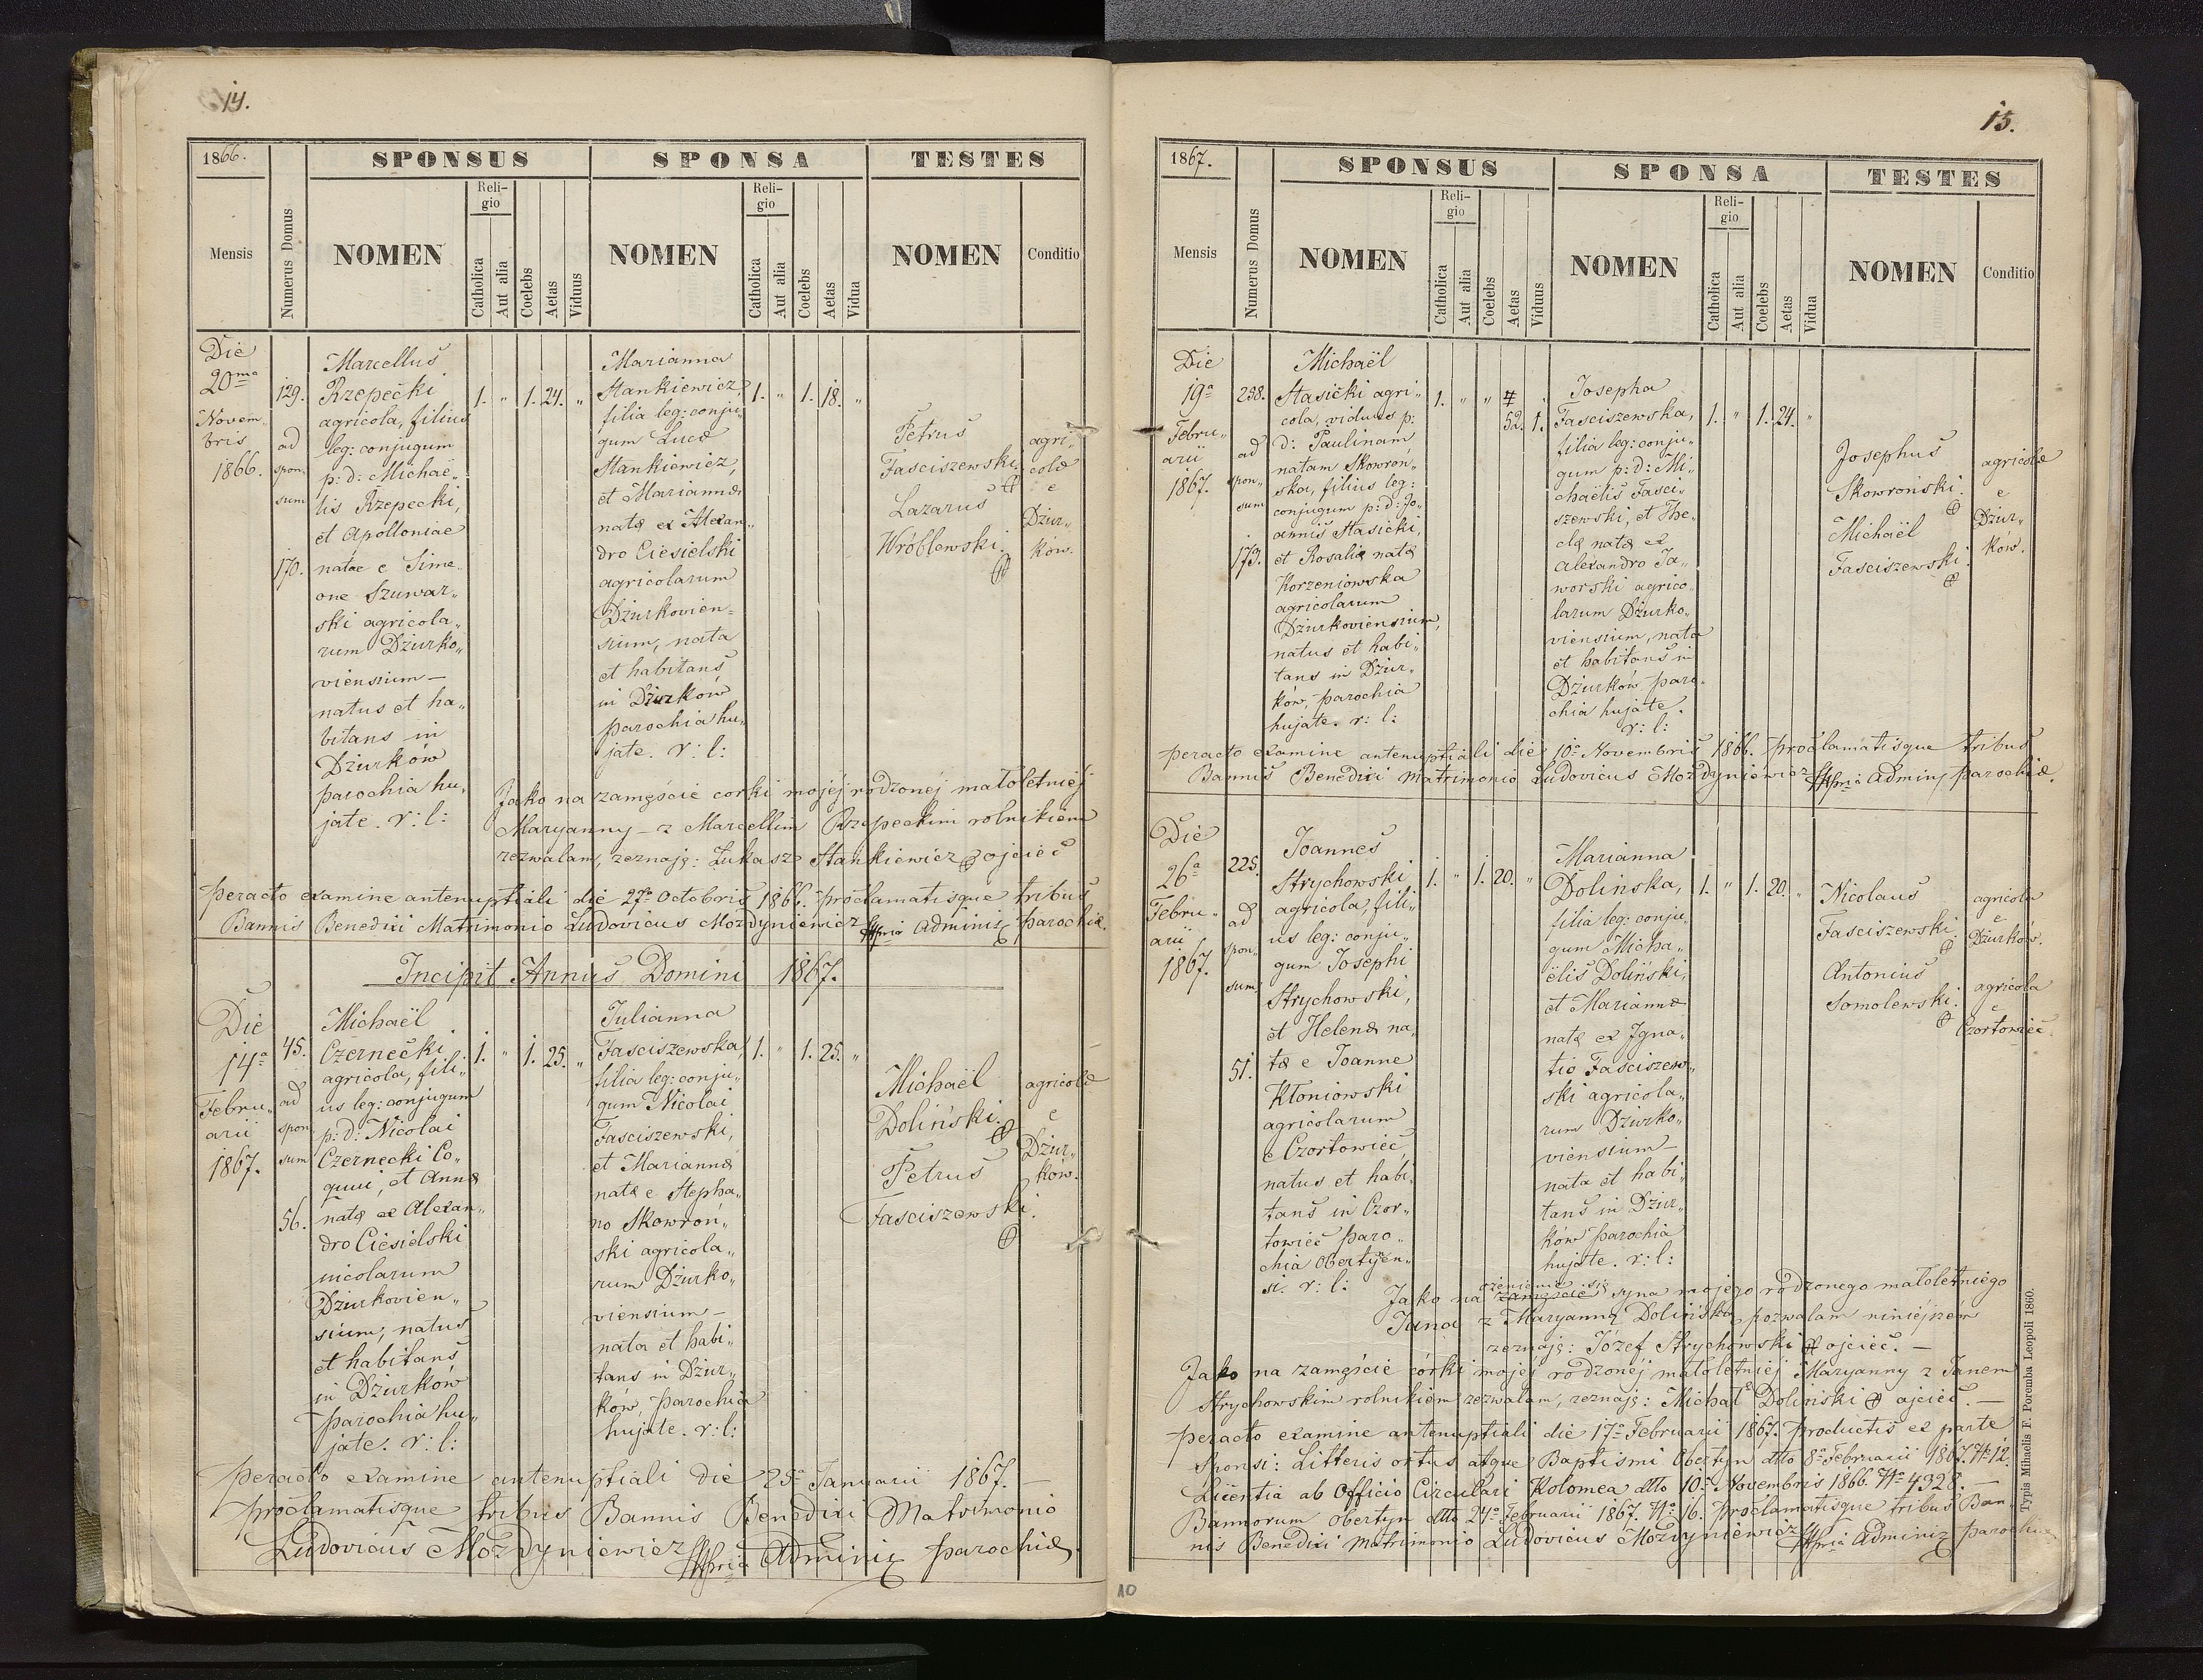 14.
1866.
SPONSUS
SPONSA
TESTES
Mensis
Numerus Domus
NOMEN
Religio
Catholica
Aut alia
Coelebs
Aetas
Viduus
NOMEN
Religio
Catholica
Aut alia
Coelebs
Aetas
Vidua
NOMEN
Conditio
Die
20ma
Novem„
bris
1866.
129.
ad
spon„
sum
170.
Marcellus
Rzepecki
agricola, filius
leg: conjugum
p: d: Michaë„
lis Rzepecki,
et Apolloniae
natae e Sime„
one Szuwar„
ski agricola„
rum Dżurko„
viensium —
natus et ha„
bitans in
Dżurków
parochia hu„
jate. r: l:
1. „ 1. 24. „
Marianna
Stankiewicz,
filia leg: conju„
gum Lucæ
Stankiewicz,
et Mariannæ
natæ ex Alexan„
dro Ciesielski
agricolarum
Dżurkovien=
sium, nata
et habitans
in Dżurków
parochia hu„
jate. r: l:
1. „ 1. 18. „
Petrus
Fasciszewski.
Lazarus
Wróblewski.
agri„
colæ
e
Dżur„
ków.
Jako na zamęście corki mojéj rodzonej małoletniéj
Maryanny — z Marcellim Rzepeckim rolnikiem
zezwalam, zeznaję: Łukasz Stankiewicz ojciec
Peracto examine antenuptiali die 27a Octobris 1866. proclamatisque tribus
Bannis Benedixi Matrimonio Ludovicus Mozdyniewicz mpria Adminis parochiæ.
Incipit Annus Domini 1867.
Die
14a
Febru„
arii
1867.
45.
ad
spon„
sum
56.
Michaël
Czernecki
agricola, fili„
us leg: conjugum
p: d: Nicolai
Czernecki Co„
quui, et Annæ
natæ ex Alexan„
dro Ciesielski
inicolarum
Dżurkovien„
sium, natus
et habitans
in Dżurków
parochia hu„
jate. r: l:
1. „ 1. 25. „
Julianna
Fasciszewska,
filia leg: conju„
gum Nicolai
Fasciszewski,
et Mariannæ
natæ e Stepha„
no Skowroń„
ski agricola„
rum Dżurko„
viensium —
nata et habi„
tans in Dżur„
ków, parochia
hujate. r: l:
1. „ 1. 25. „
Michaël
Doliński.
Petrus
Fasciszewski.
agricolæ
e
Dżur„
ków.
Peracto examine antenuptiali die 25a Januarii 1867. —
proclamatisque tribus Bannis Benedixi Matrimonio
Ludovicus Mozdyniewicz mpria Adminis parochiæ.
15.
1867.
SPONSUS
SPONSA
TESTES
Mensis
Numerus Domus
NOMEN
Religio
Catholica
Aut alia
Coelebs
Aetas
Viduus
NOMEN
Religio
Catholica
Aut alia
Coelebs
Aetas
Vidua
NOMEN
Conditio
Die
19a
Febru„
arii
1867.
238.
ad
spon„
sum
173.
Michaël
Stasicki agri„
cola, viduus p:
d: Paulinam
natam Skowroń„
ska, filius leg:
conjugum p: d: Jo„
annis Stasicki,
et Rosaliæ natæ
Korzeniowska
agricolarum
Dżurkoviensium,
natus et habi„
tans in Dżur„
ków, parochia
hujate. r: l:
1. „ „ 52. 1.
Josepha
Fasciszewska,
filia leg: conju„
gum p: d: Mi„
chaëlis Fasci„
szewski, et The„
clæ natæ ex
Alexandro Ja„
worski agrico„
larum Dżurko„
viensium, nata
et habitans in
Dżurków paro„
chia hujate.
r: l:
1. „ 1. 24. „
Josephus
Skowroński.
Michaël
Fasciszewski.
agricolæ
e
Dżur„
ków.
Peracto examine antenuptiali die 10a Novembris 1866. proclamatisque tribus
Bannis Benedixi Matrimonio Ludovicus Mozdyniewicz mpria Adminis parochiæ.
Die
26a
Febru„
arii
1867.
225.
ad
spon„
sum.
51.
Joannes
Strychowski
agricola, fili„
us leg: conju„
gum Josephi
Strychowski,
et Helenæ na„
tæ e Joanne
Kłoniowski
agricolarum
e Czortowiec,
natus et habi„
tans in Czor„
towiec paro„
chia Obertyen„
si. r: l:
1. „ 1. 20. „
Marianna
Dolinska,
filia leg: conju„
gum Micha„
ëlis Doliński,
et Mariannæ
natæ ex Igna„
tio Fasciszew„
ski agricola„
rum Dżurko„
viensium
nata et habi„
tans in Dżur„
ków parochia
hujate. r: l:
1. „ 1. 20. „
Nicolaus
Fasciszewski.
Antonius
Somolewski.
agricola
e
Dżurków.
agricola
e
Czortowiec.
ożenienie się
Jako na zamęście syna mojego rodzonego małoletniego
Jana z Maryanną Dolińską pozwalam niniéjszém
zeznaję: Józef Strychowski ojciec. —
Jako na zamęście córki mojéj rodzonéj małoletniéj Maryanny z Janem
Strychowskim rolnikiem zezwalam, zeznaję: Michał Doliński ojciec. —
Peracto examine antenuptiali die 17a Februarii 1867. productis ex parte
Sponsi: Litteris ortus atque Baptismi Obertyn dtto 8a Februarii 1867. No 12.
Licentia ab Officio Circulari Kolomea dtto 10a Novembris 1866. No 4328. —
Bannorum Obertyn dtto 24a Februarii 1867. No 16. proclamatisque tribus Ban„
nis Benedixi Matrimonio Ludovicus Mozdyniewicz mpria Adminis parochiæ
Typis Mihaelis F. Poremba Leopoli 1860.
10